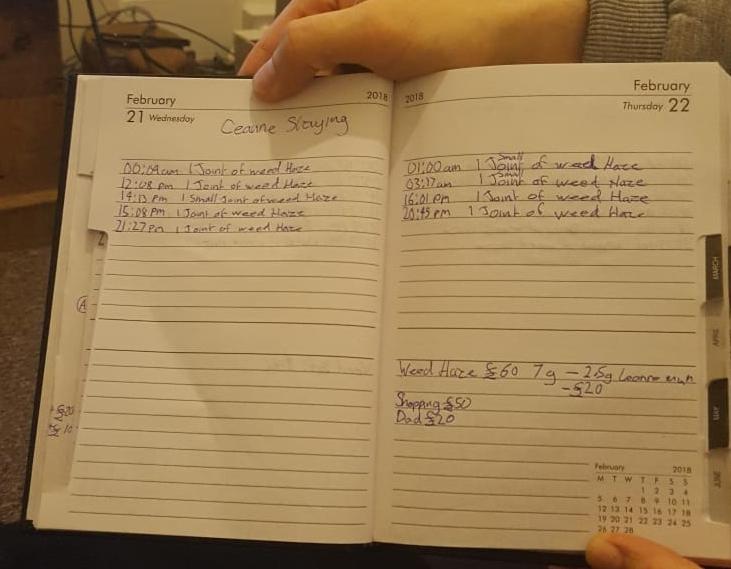 February 2018
21 Wednesday
Ceanne Staying
00:04am 1 Joint of weed Haze
12:08 pm 1 Joint of weed Haze
14:13 pm 1 Small Joint of weed Haze
15:08 pm 1 Joint of weed Haze
21:27 Pm 1 Joint of weed Haze
2018 February
Thursday 22
01:00am 1 Small Joint of weed Haze
03:17am 1 Small Joint of weed Haze
16:01 Pm 1 Joint of weed Haze
20:45 pm 1 Joint of weed Haze
Weed Haze £60 7g - 2.5g
-£20
Shopping £50
Dad £20
February 2018
M T W T F S S
1 2 3 4
5 6 7 8 9 10 11
12 13 14 15 16 17 18
19 20 21 22 23 24 25
26 27 28
MARCH
APRIL
MAY
JUNE
A
+£20